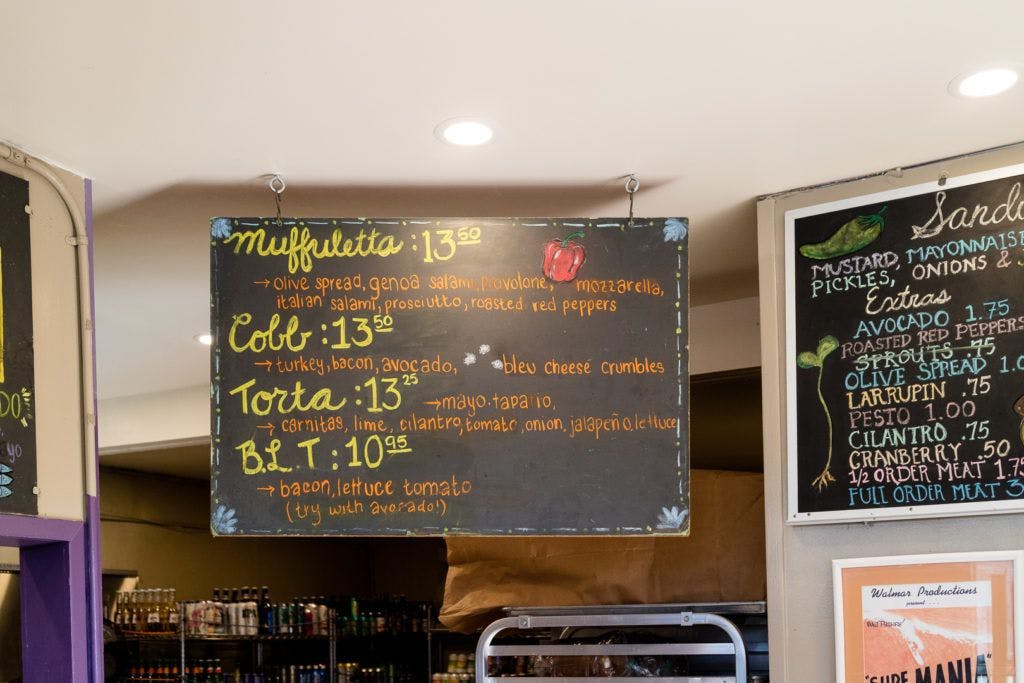 Muffuletta : 13 50
→ olive spread, genoa salami, provolone, mozzarella,
italian salami, prosciutto, roasted red peppers
Cobb : 13 50
→ turkey, bacon, avocado, bleu cheese crumbles
Torta : 13 25 → mayo. tapatio,
→ carnitas, lime, cilantro, tomato, onion, jalapeño, lettuce
B.L.T : 10 95
→ bacon, lettuce tomato
(try with avocado!)
MUSTARD, MAYONNAISE
PICKLES, ONIONS &
Extras
AVOCADO 1.75
ROASTED RED PEPPERS
SPROUTS .75
OLIVE SPREAD
LARRUPIN .75
PESTO 1.00
CILANTRO .75
CRANBERRY .50
1/2 ORDER MEAT 1.75
FULL ORDER MEAT
Walmar Productions
present . . .
"SURF MANIA